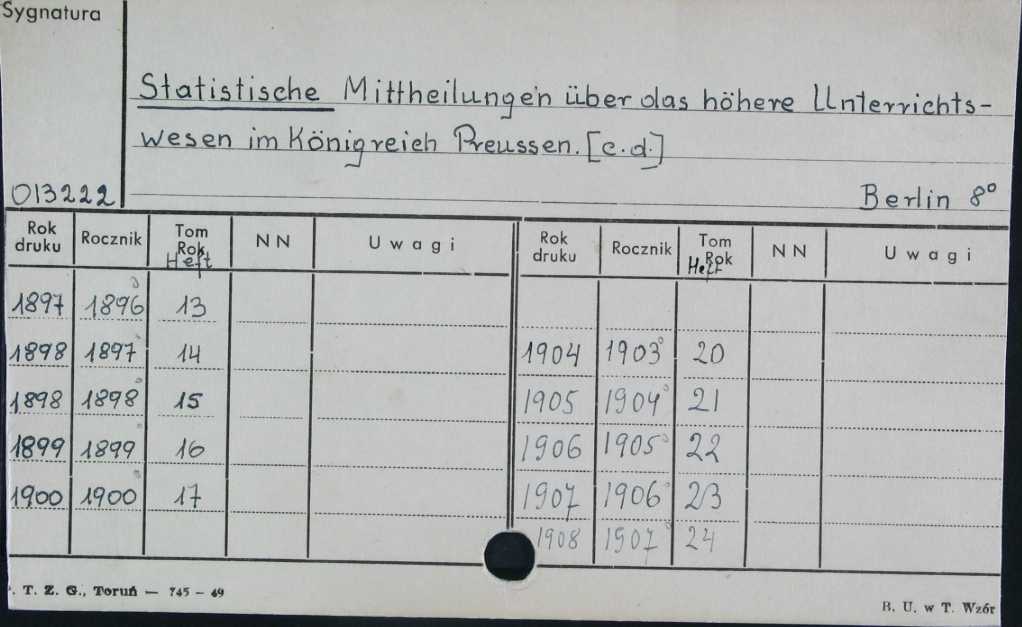 Sygnatura
Statistische Mittheilungen über das höhere Unterrichts-
wesen im Königreich Preussen. [c.d.]
013222
Berlin 8°
Rok druku Rocznik Tom Rok Heft NN Uwagi Rok druku Rocznik Tom Rok Heft NN Uwagi
1897 1896 13
1898 1897 14 1904 1903 20
1898 1898 15 1905 1904 21
1899 1899 16 1906 1905 22
1900 1900 17 1907 1906 23
1908 1907 24
. T. Z. G., Toruń — 745 - 49
B. U. w T. Wzór